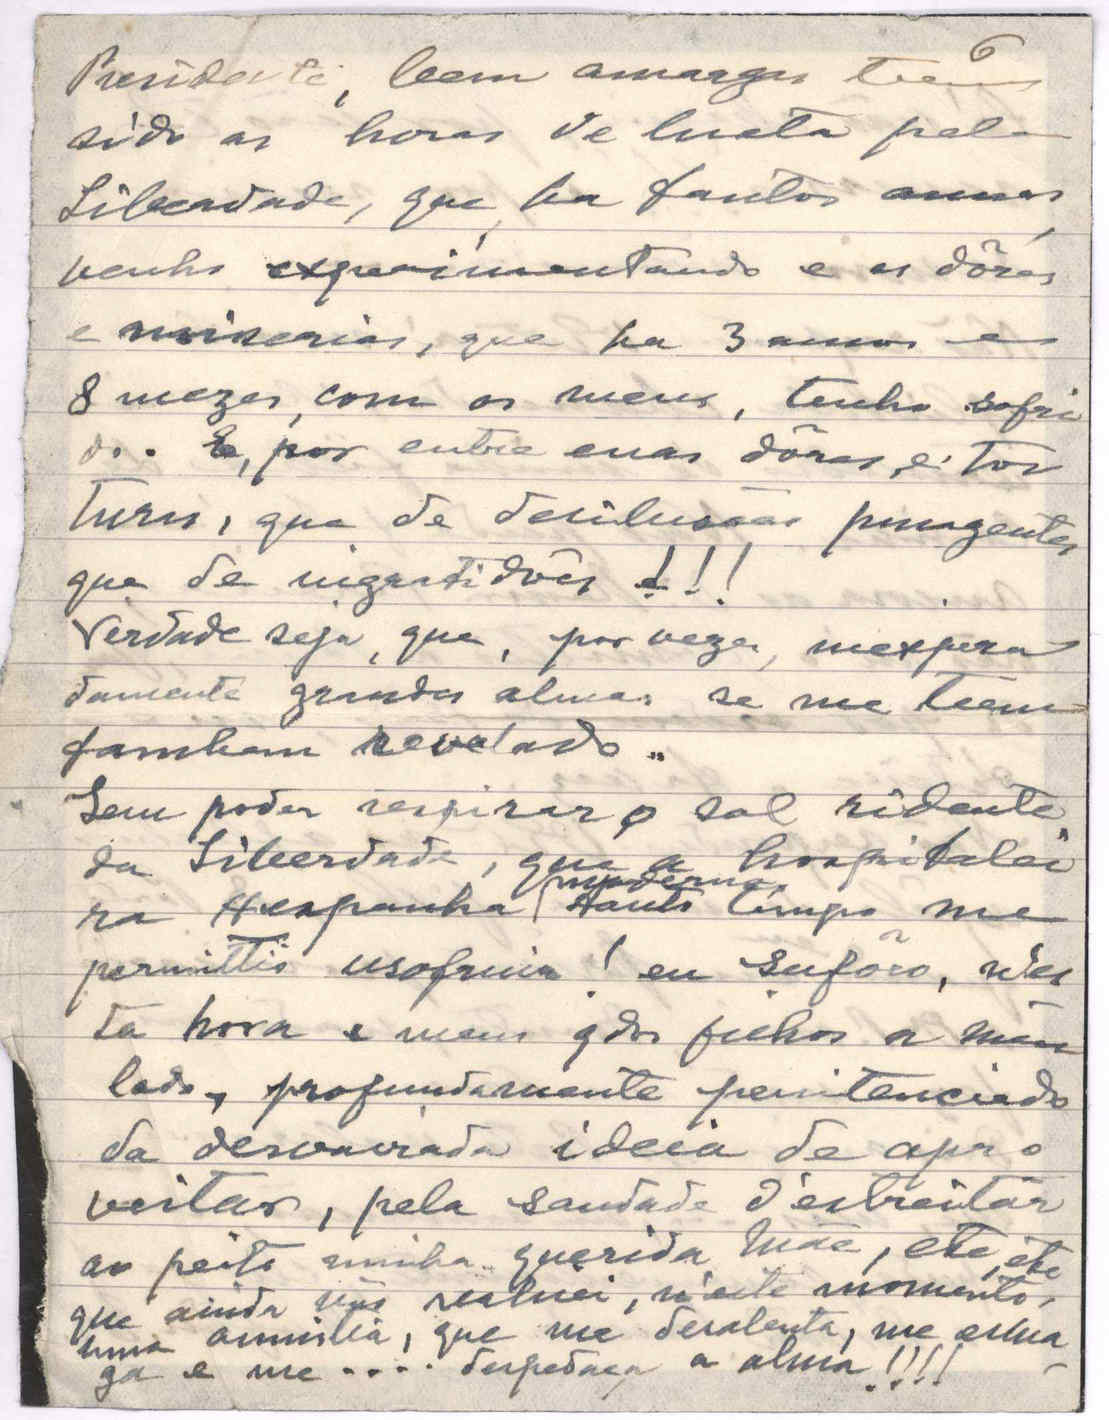 6
Presidente, bem amargas teem
sido as horas de lucta pela
Liberdade, que, ha tantos annos,
venho experimentando e as dôres
e miserias, que ha 3 annos e
8 mezes, com os meus, tenho sofri
do.. E, por entre essas dôres, e tor
turas, que de desilusões pungentes
que de ingratidões !!!
Verdade seja, que, por vezes, inespera
damente grandes almas se me teem
tambem revelado..
Sem poder respirar o sol ridente
da Liberdade, que a hospitalei
ra Hespanha tanto tempo me
permittiu usofruir! eu sufóro, n'es
ta hora e meus qdos filhos a meu
lado, profundamente penitenciado
da desvairada ideia de apro
veitar, pela saudade d'estreitar
ao peito minha querida Mãe, etc, etc
que ainda não realisei, n'este momento,
uma amnistia, que me desalenta, me esma
ga e me .... despedaça a alma!!!!